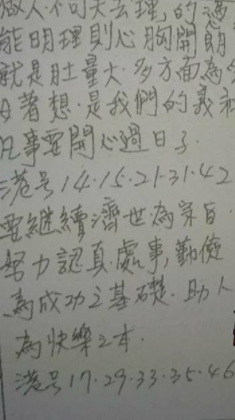 做人不可失去理,的憑
能明理則心胸開朗
就是肚量大.多方面為
母著想.是我們的義
凡事要開心過日子
港号14.15.21.31.42
要繼續濟世為宗旨.
努力認真處事,勤儉
為成功之基礎.助人
為快樂之本.
港号17.29.33.35.46